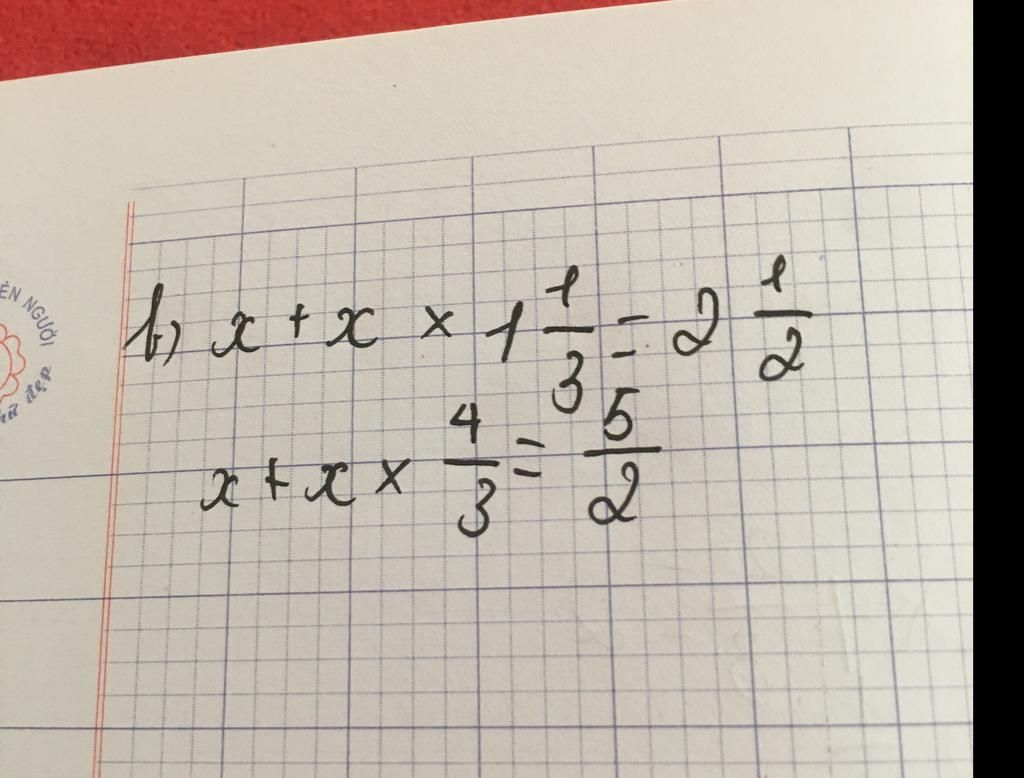 ÈN NGƯỜI
đẹp
b) x + x × 1 1/3 = 2 1/2
x + x × 4/3 = 5/2